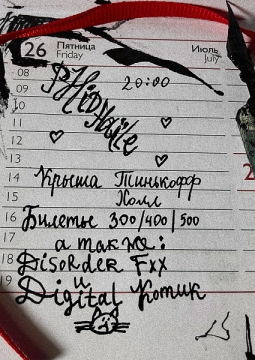 26 Пятница Июль
Friday July
08
09 20:00
10
11
12
13
14 Крыша Тинькофф
15 Холл
16 Билеты 300/400/500
17 а также:
18 DisoRder Fxx
и
19 Digital Котик